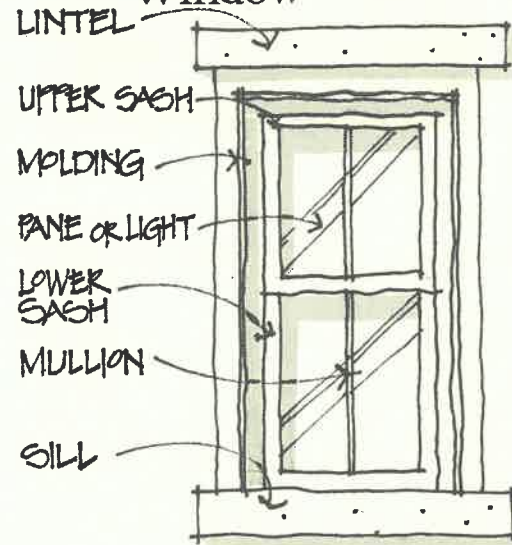 Window
LINTEL
UPPER SASH
MOLDING
PANE OR LIGHT
LOWER
SASH
MULLION
SILL